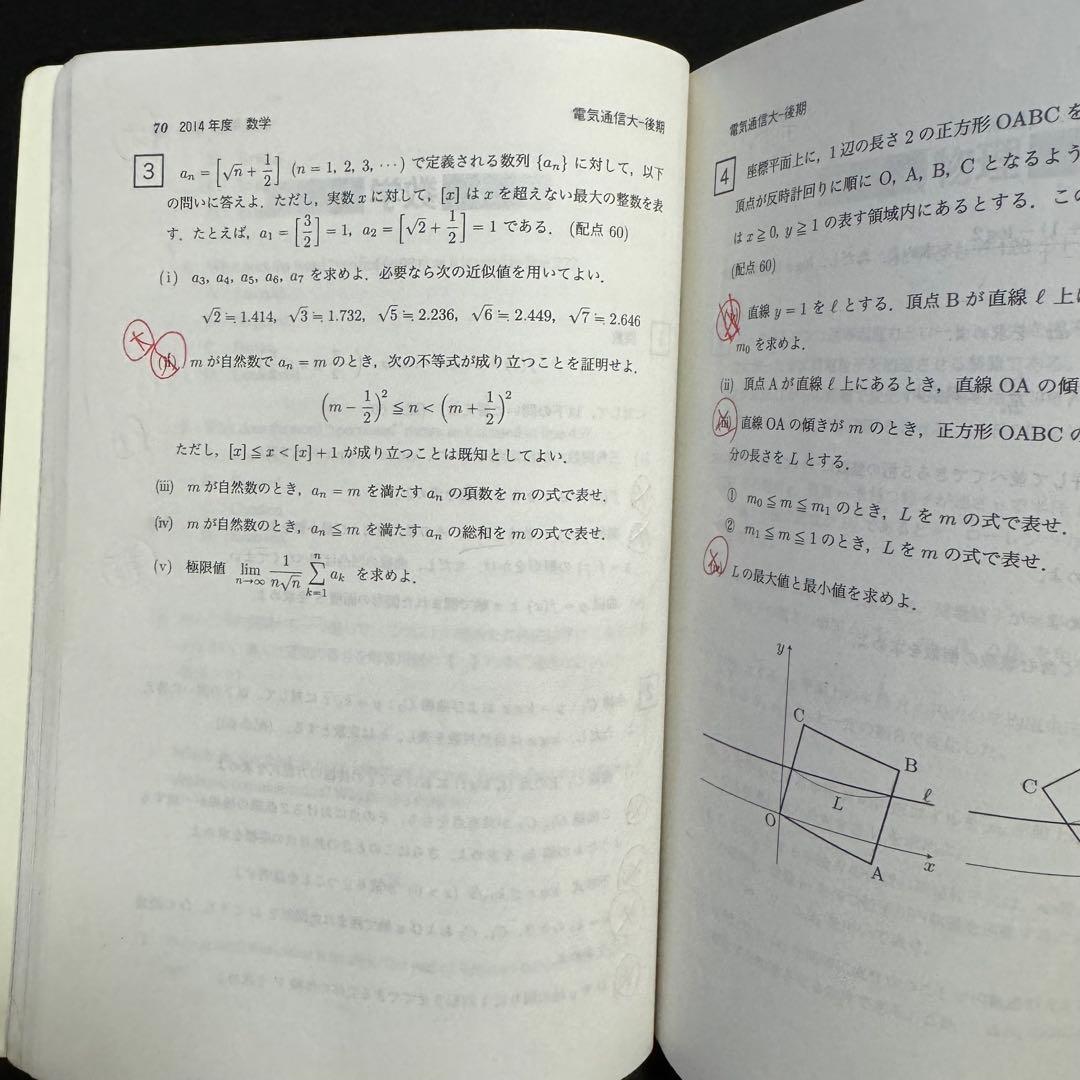 70 2014年度 数学
電気通信大-後期
3 a_n = [√n + 1/2] (n = 1, 2, 3, ⋯) で定義される数列 {a_n} に対して, 以下
の問いに答えよ. ただし, 実数 x に対して, [x] は x を超えない最大の整数を表
す. たとえば, a_1 = [3/2] = 1, a_2 = [√2 + 1/2] = 1 である. (配点 60)
(i) a_3, a_4, a_5, a_6, a_7 を求めよ. 必要なら次の近似値を用いてよい.
√2 ≒ 1.414, √3 ≒ 1.732, √5 ≒ 2.236, √6 ≒ 2.449, √7 ≒ 2.646
(ii) m が自然数で a_n = m のとき, 次の不等式が成り立つことを証明せよ.
(m - 1/2)^2 ≦ n < (m + 1/2)^2
ただし, [x] ≦ x < [x] + 1 が成り立つことは既知としてよい.
(iii) m が自然数のとき, a_n = m を満たす a_n の項数を m の式で表せ.
(iv) m が自然数のとき, a_n ≦ m を満たす a_n の総和を m の式で表せ.
(v) 極限値 lim_{n→∞} 1/(n√n) ∑_{k=1}^{n} a_k を求めよ.
電気通信大-後期
4 座標平面上に, 1辺の長さ 2 の正方形 OABC を
頂点が反時計回りに順に O, A, B, C となるよう
は x ≧ 0, y ≧ 1 の表す領域内にあるとする. この
(配点 60)
直線 y = 1 を ℓ とする. 頂点 B が直線 ℓ 上に
m_0 を求めよ.
(ii) 頂点 A が直線 ℓ 上にあるとき, 直線 OA の傾
(iii) 直線 OA の傾きが m のとき, 正方形 OABC の
分の長さを L とする.
① m_0 ≦ m ≦ m_1 のとき, L を m の式で表せ.
② m_1 ≦ m ≦ 1 のとき, L を m の式で表せ.
L の最大値と最小値を求めよ.
y
C
B
C
L
ℓ
O
x
A